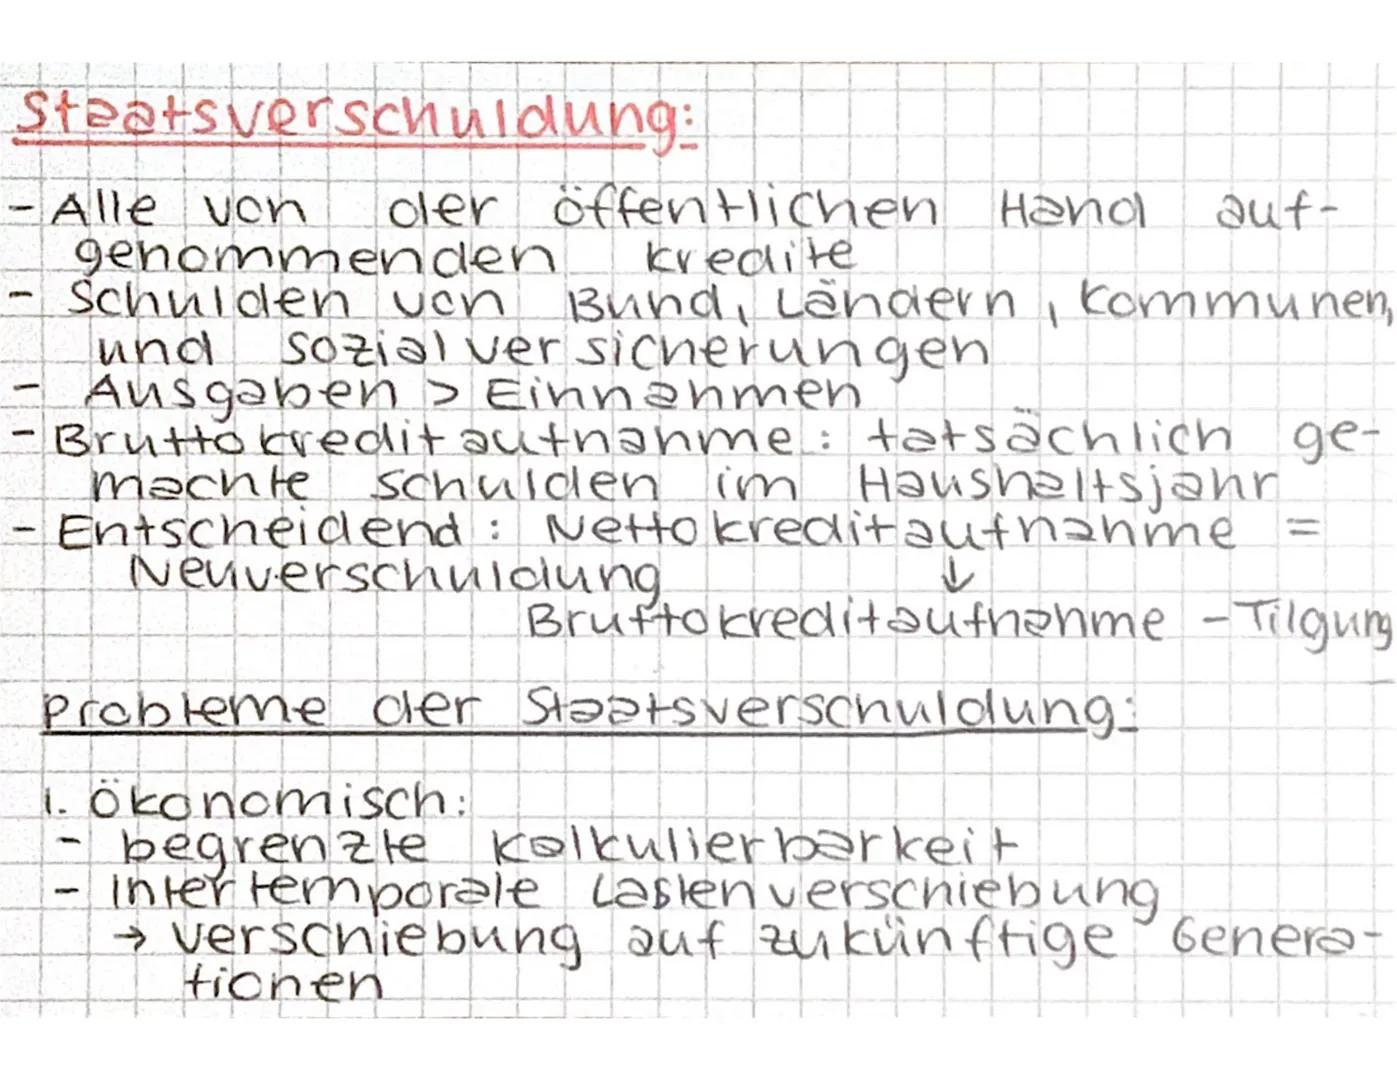 Staatsverschuldung:
- Alle von der öffentlichen Hand auf-
genommenden Kredite
- Schulden von Bund, Ländern, Kommunen,
und Sozialversicherungen
- Ausgaben > Einnahmen
- Bruttokreditaufnahme: tatsächlich ge-
machte Schulden im Haushaltsjahr
- Entscheidend: Nettokreditaufnahme =
Neuverschuldung ↓
Bruttokreditaufnahme - Tilgung
Probleme der Staatsverschuldung:
1. Ökonomisch:
- begrenzte Kalkulierbarkeit
- Intertemporale Lastenverschiebung
→ Verschiebung auf zukünftige Genera-
tionen